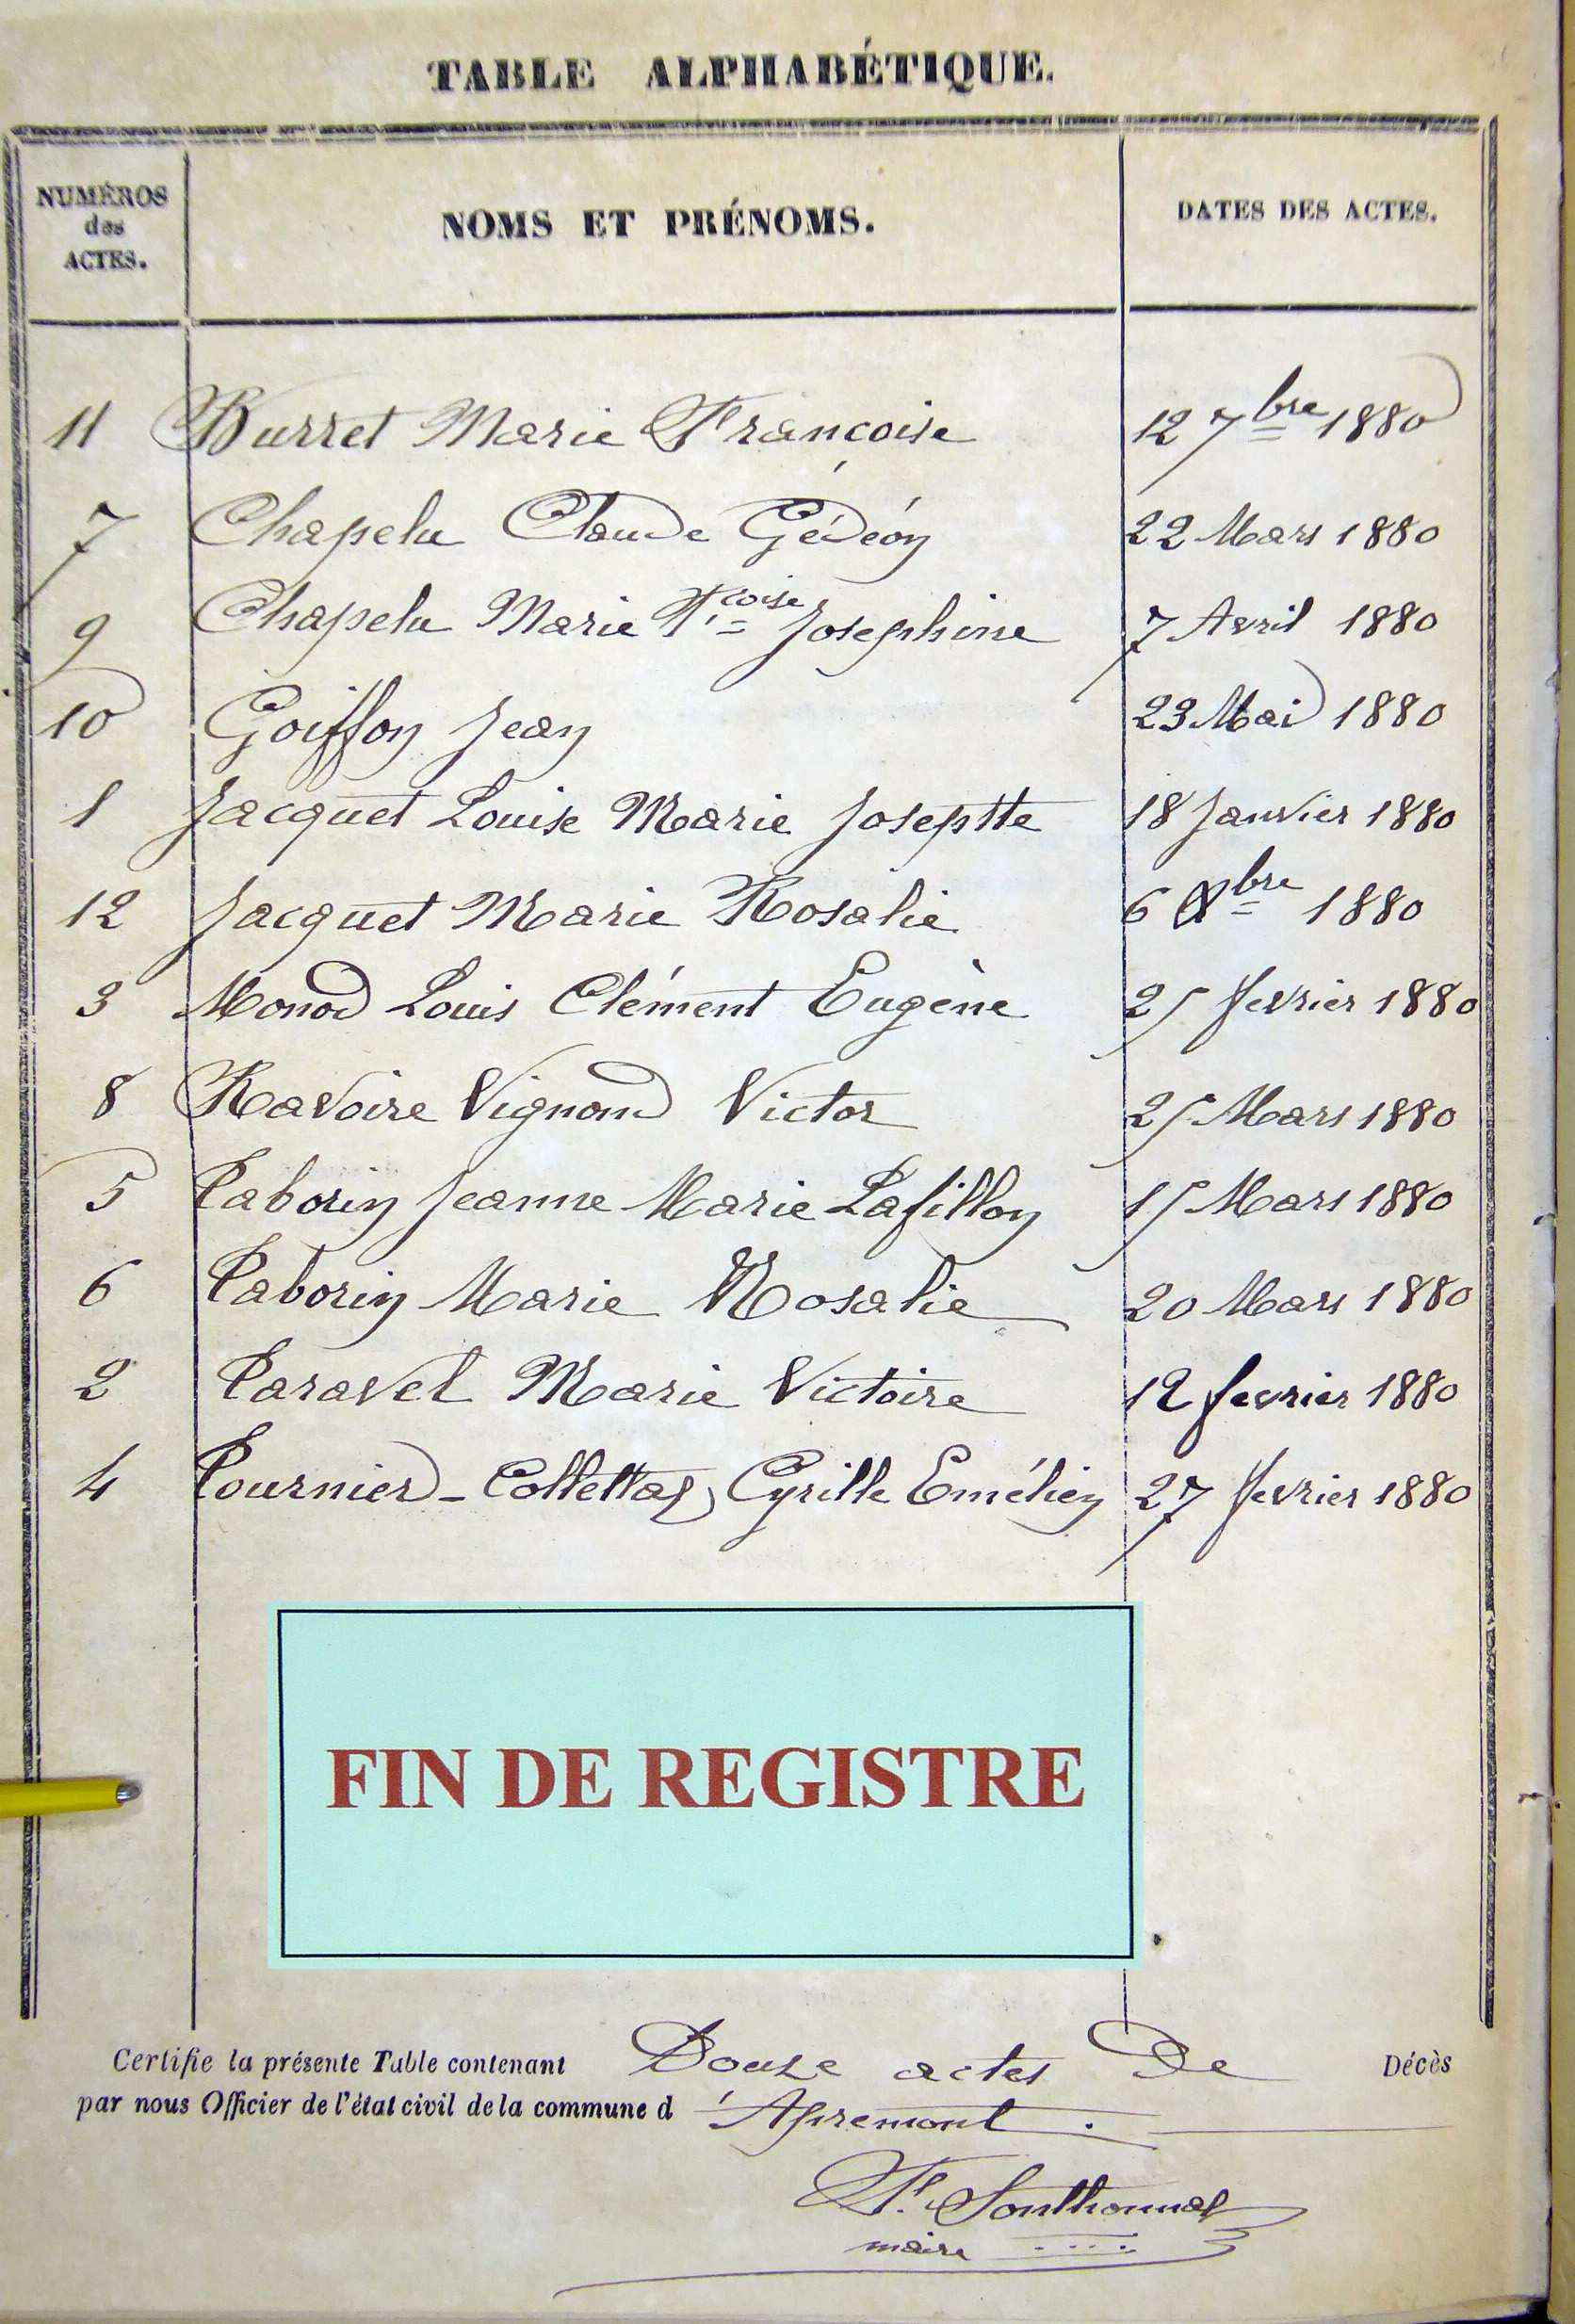 TABLE ALPHABÉTIQUE.
NUMÉROS des ACTES. NOMS ET PRÉNOMS. DATES DES ACTES.
11 Burret Marie Françoise 12 7bre 1880
7 Chapelu Claude Gédéon 22 Mars 1880
9 Chapelu Marie Fçoise Josephine 7 Avril 1880
10 Goiffon Jean 23 Mai 1880
1 Jacquet Louise Marie Josephte 18 Janvier 1880
12 Jacquet Marie Rosalie 6 Xbre 1880
3 Monod Louis Clément Eugène 25 fevrier 1880
8 Ravoire Vignond Victor 25 Mars 1880
5 Taborin Jeanne Marie Lafillon 15 Mars 1880
6 Taborin Marie Rosalie 20 Mars 1880
2 Taravel Marie Victoire 12 fevrier 1880
4 Tournier-Collettaz Cyrille Emélien 27 fevrier 1880
FIN DE REGISTRE
Certifie la présente Table contenant Douze actes De Décès
par nous Officier de l'état civil de la commune d'Apremont.
F. Sonthonnax
maire